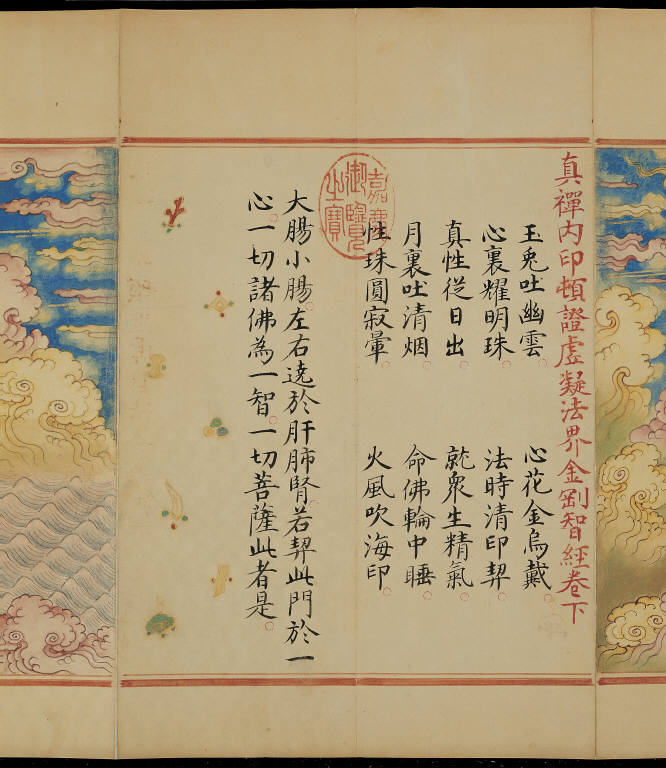 真禪内印頓證虛凝法界金剛智經卷下
玉兔吐幽雲。 心花金烏戴。
心裏耀明珠。 法時清印契。
真性從日出。 就衆生精氣。
月裏吐清烟。 命佛輪中睡。
性珠圓寂暈。 火風吹海印。
嘉慶御覽之寶
大腸小腸。左右遶於肝肺腎。若契此門於一
心。一切諸佛為一智。一切菩薩此者是。